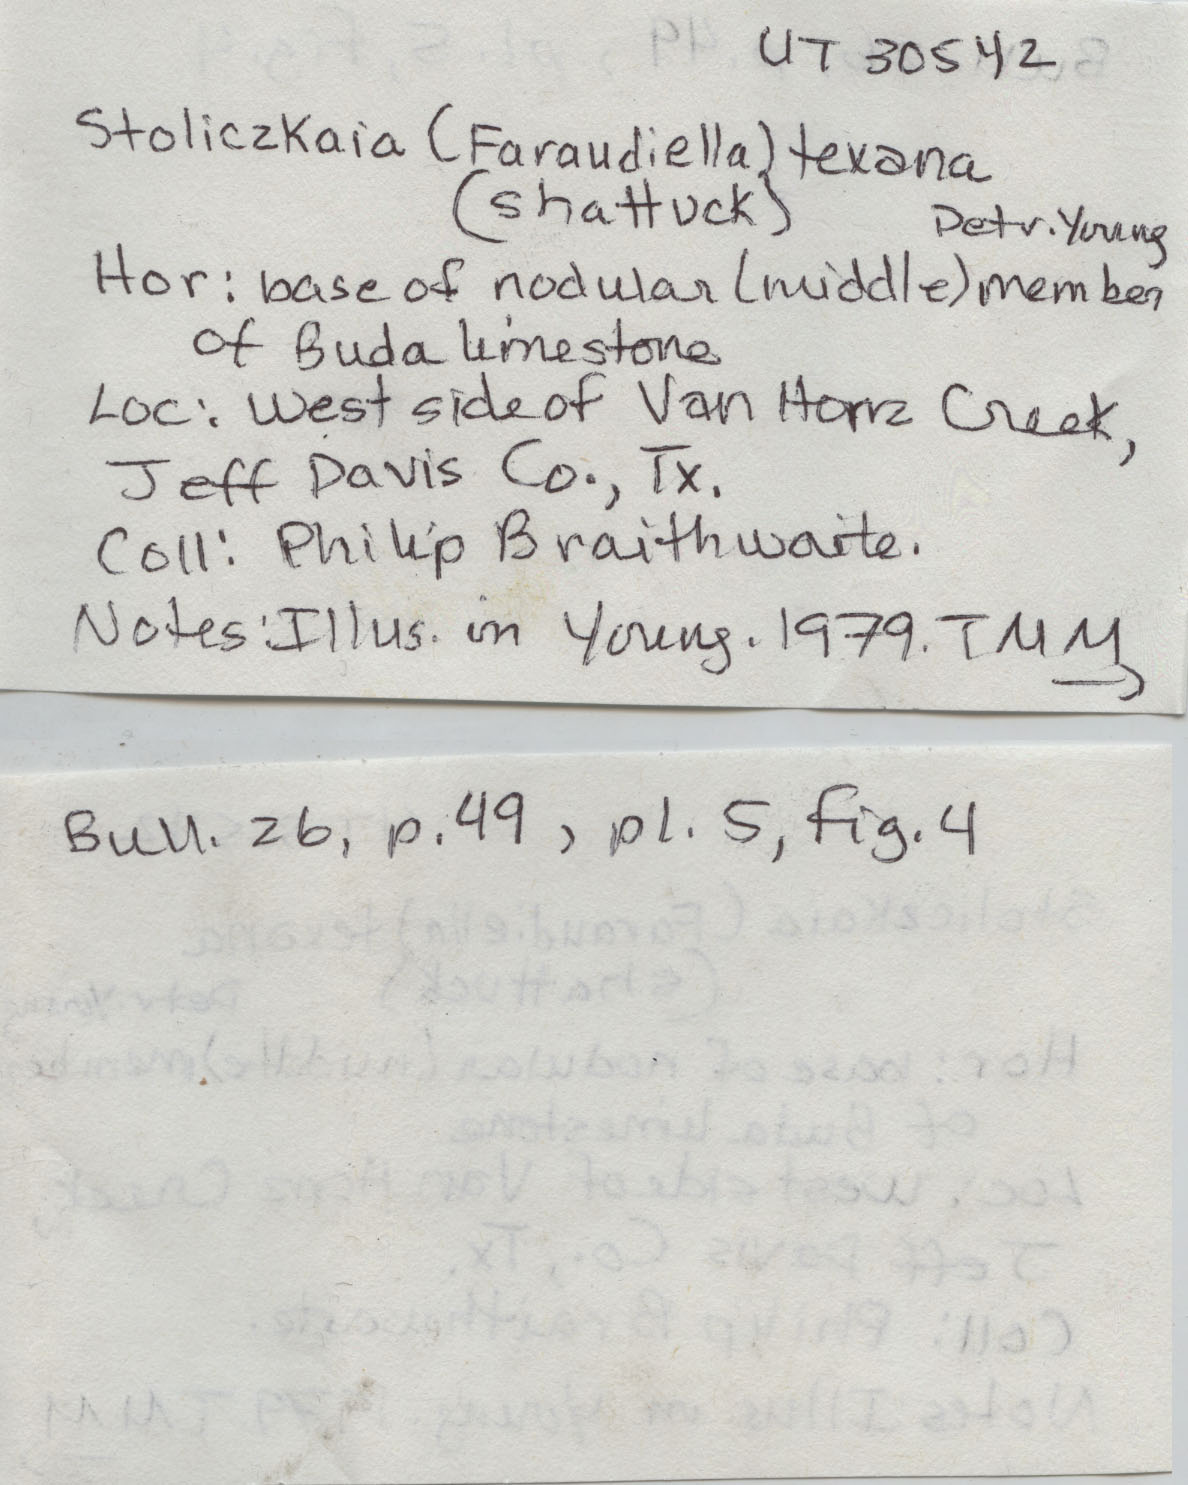 UT 30542
Stoliczkaia (Faraudiella) texana
(shattuck)
Detr. Young
Hor: base of nodular (middle) member
of Buda limestone
Loc: West side of Van Horn Creek,
Jeff Davis Co., Tx.
Coll: Philip Braithwaite.
Notes: Illus. in Young. 1979. TMM
Bull. 26, p. 49, pl. 5, fig. 4